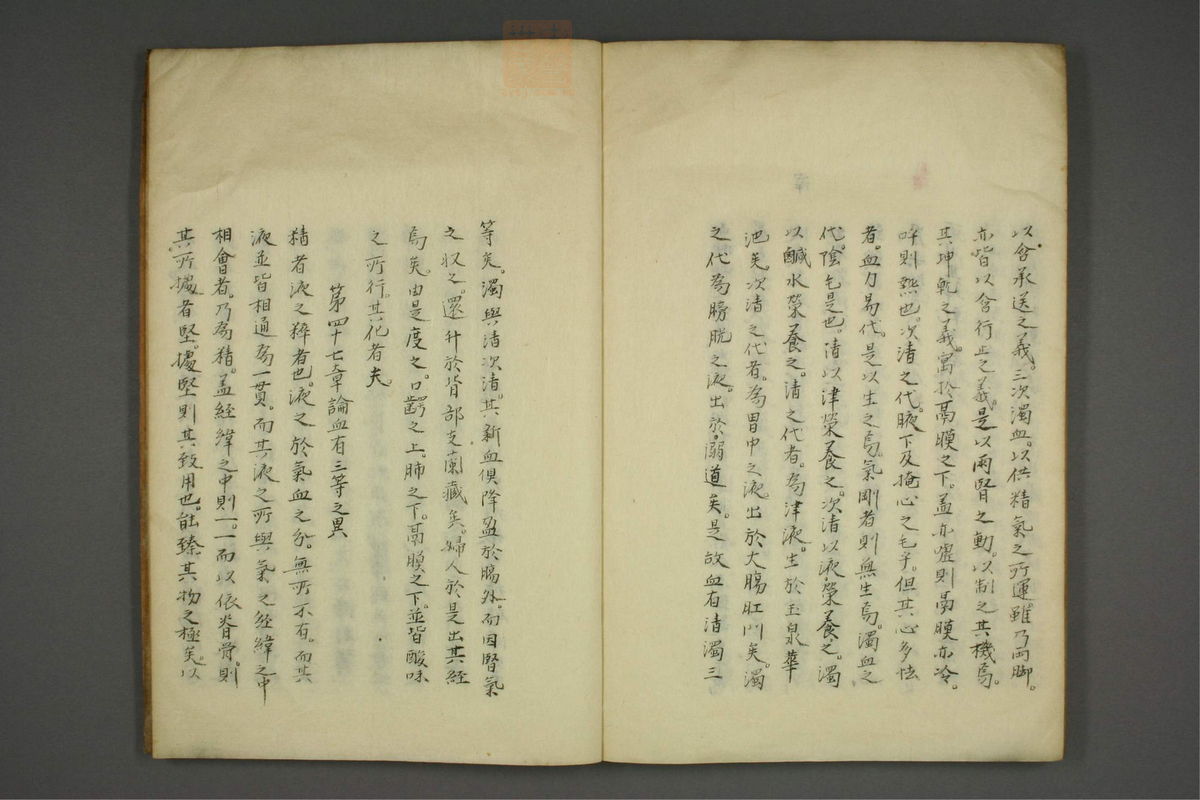 以含承送之義。三次濁血。以供精氣之所運雖乃両脚。
亦皆以含行正之義。是以兩腎之動。以制之其機焉。
其坤乾之義。寓於鬲膜之下。盖亦嘘則鬲膜亦冷。
呼則熱也。次清之代。腋下及掩心之毛子。但其心多怯
者。血力易代。是以生之焉。氣剛者則無生焉。濁血之
代。陰毛是也。清以津榮養之。次清以液榮養之。濁
以鹹水榮養之。清之代者。為津液。生於玉泉華
池矣。次清之代者。為胃中之液。出於大腸肛門矣。濁
之代為膀胱之液。出於。溺道矣。是故血有清濁三
等矣。濁與清次清。其新血俱降盈於腸外。而因腎氣
之収之。還升於背部支蘭藏矣。婦人於是出其経
焉矣。由是度之。口齶之上。肺之下。鬲膜之下。並皆酸味
之所行。其化者夫
第四十七章論血有三等之異
精者液之粹者也。液之於氣血之分。無所不有。而其
液並皆相通為一貫。而其液之所與氣之経緯之中
相會者。乃為精。盖経緯之中則一。一而以依脊骨。則
其所據者堅。據堅則其致用也。能臻其物之極矣。以